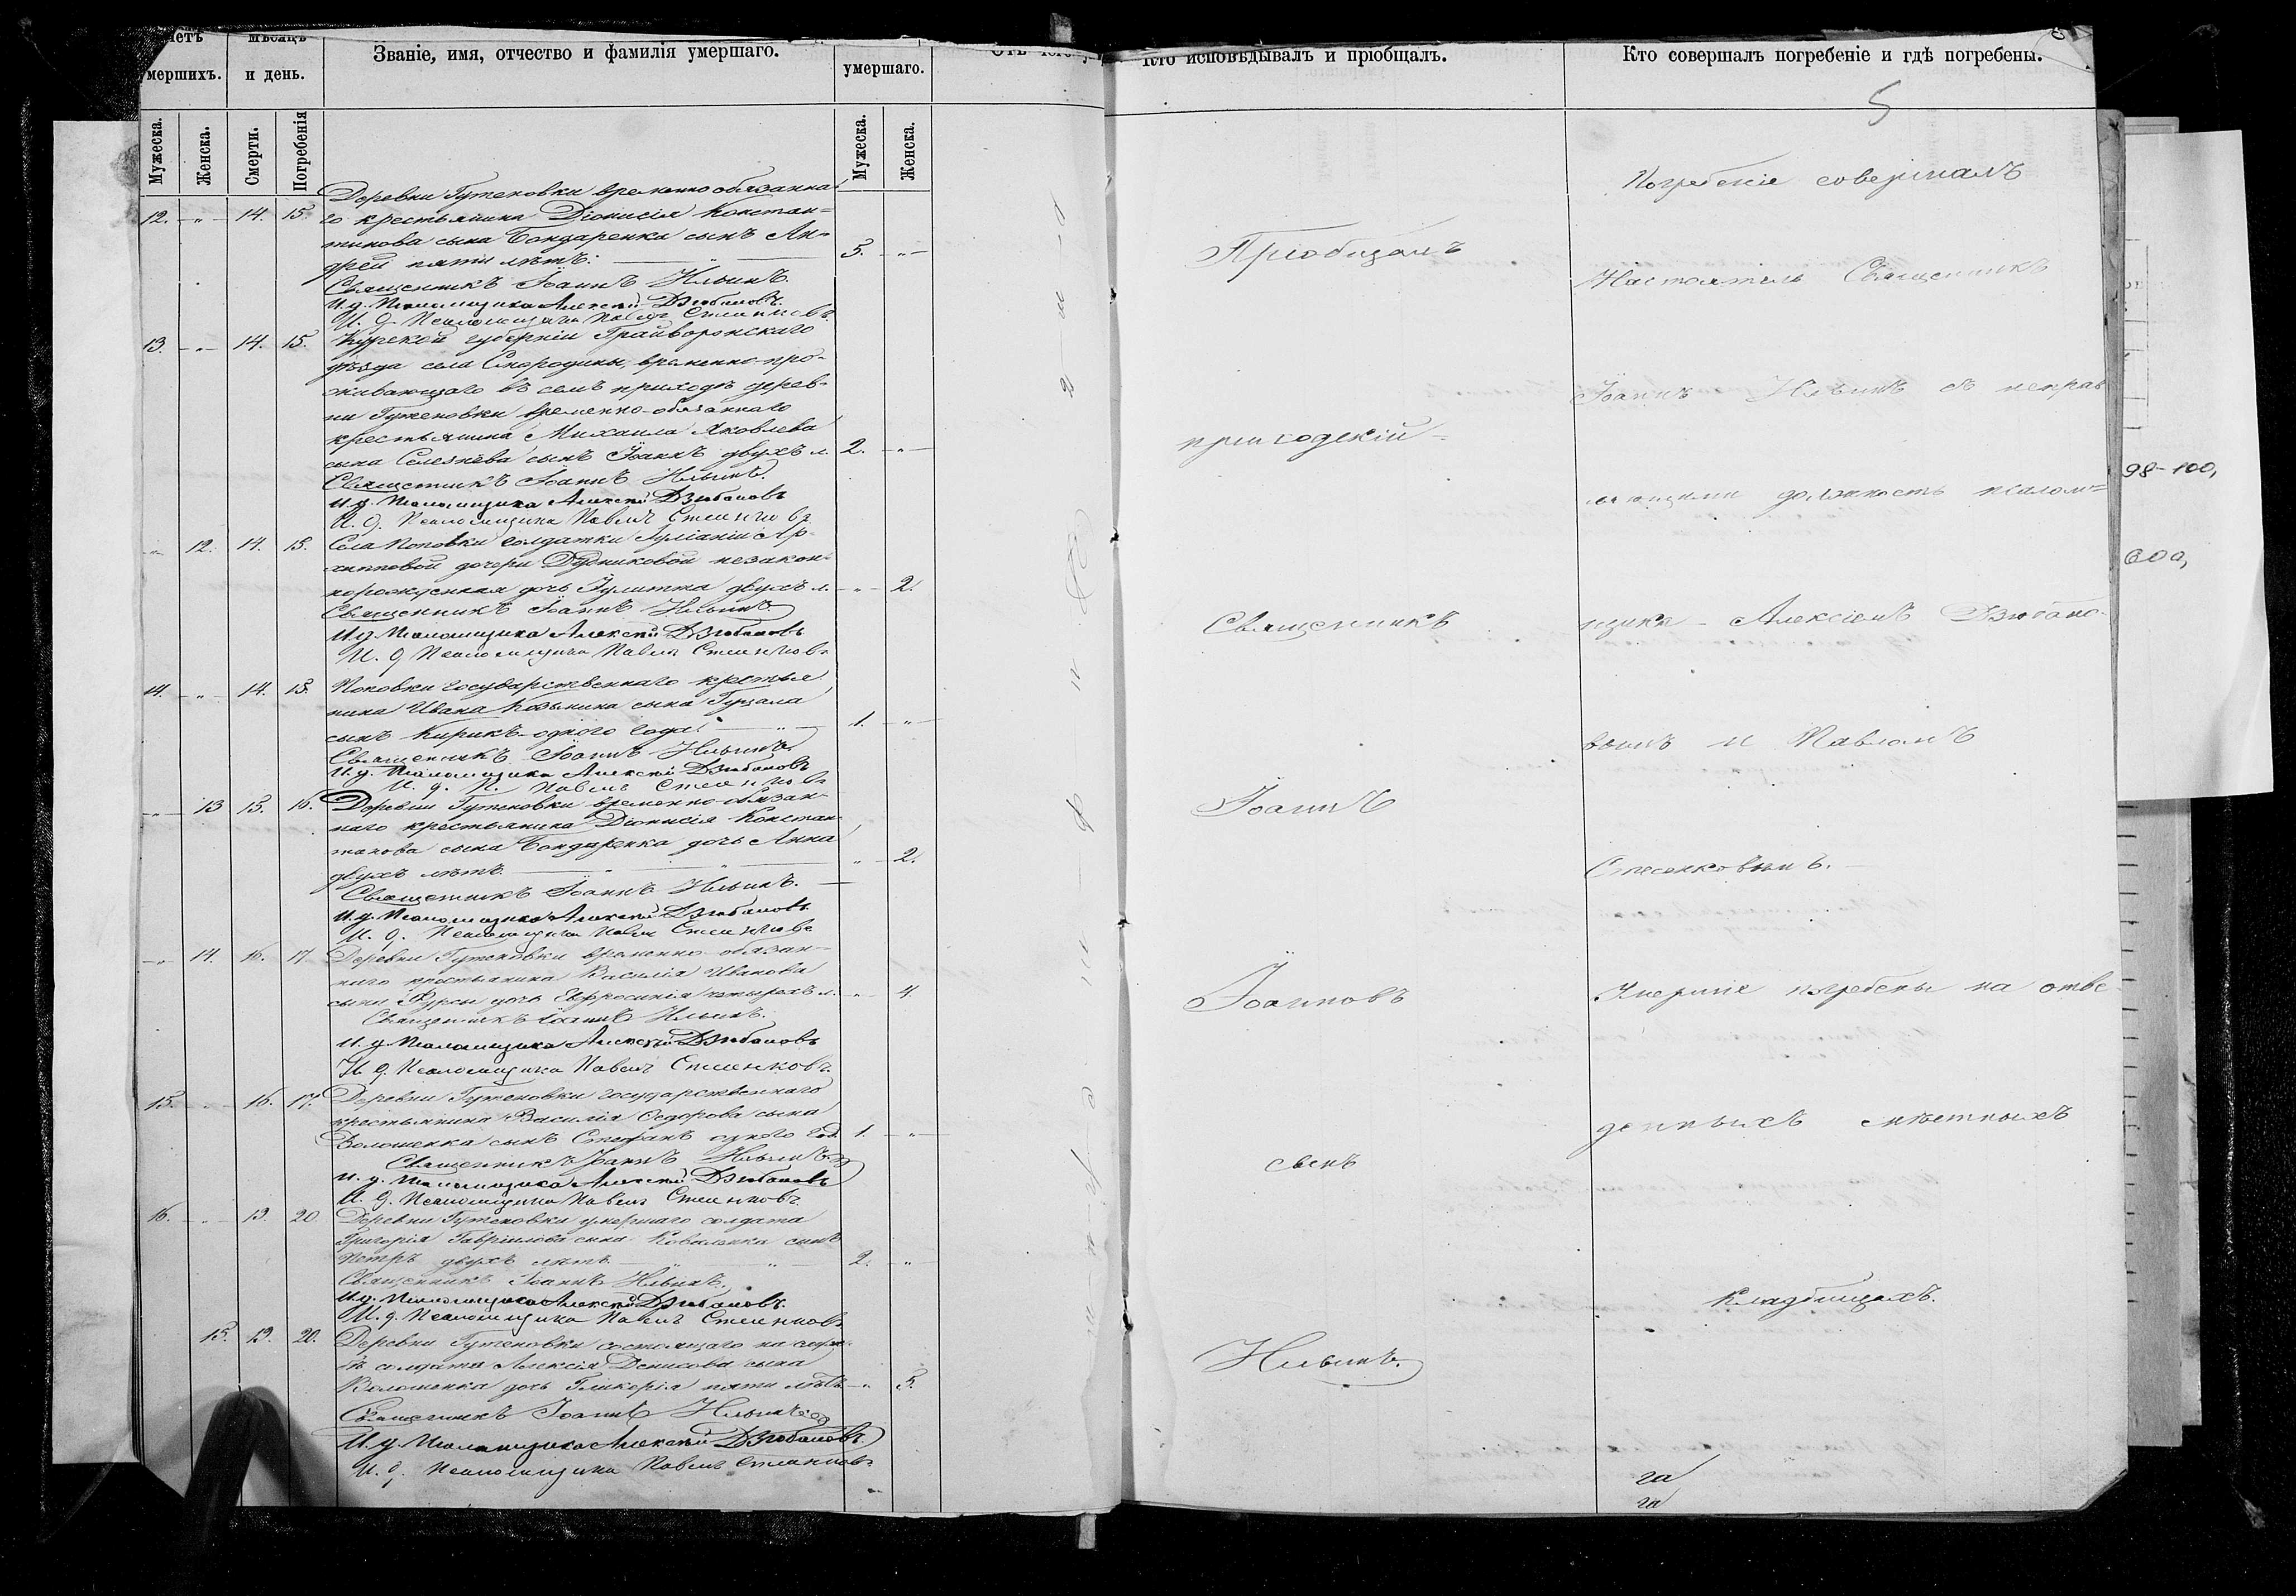 Счетъ
умершихъ.
Мѣсяцъ
и день.
Званіе, имя, отчество и фамилія умершаго.
умершаго.
Мужеска.
Женска.
Смерти.
Погребенія
Мужеска.
Женска.
Деревни Гутеновки временно обязанна
12. " 14. 15. го крестьянина Діонисія Констан=
тинова сына Бондаренка сынъ Ан=
дрей пяти лѣтъ. " 5. "
Священникъ Іоаннъ Ильинъ.
И. д. Псаломщика Алексѣй Дзюбановъ.
И. д. Псаломщика Павелъ Стесенковъ
13. " 14. 15. Курской губерніи Грайворонскаго
уѣзда села Смородина, временно-про-
живающаго въ семъ приходѣ дерев-
ни Гутеновки временно-обязаннаго
крестьянина Михаила Яковлева
сына Селезнева сынъ Іоаннъ двухъ л. 2. "
Священникъ Іоаннъ Ильинъ.
И. д. Псаломщика Алексѣй Дзюбановъ
И. д. Псаломщика Павелъ Стесенковъ
" 12. 14. 15. Села Поповки солдатки Іуліаніи Ар-
хипповой дочери Дудниковой незакон-
норожденная дочь Іулитта двухъ л. " 2.
Священникъ Іоаннъ Ильинъ
И. д. Псаломщика Алексѣй Дзюбановъ
И. д. Псаломщика Павелъ Стесенковъ
14. " 14. 15. Поповки государственнаго крестья
нина Ивана Козьмина сына Гуцала
сынъ Кирикъ одного года. " 1. "
Священникъ Іоаннъ Ильинъ
И. д. Псаломщика Алексѣй Дзюбановъ
И. д. П. Павелъ Стесенковъ
" 13 15. 16. Деревни Гутеновки временно-обязан-
наго крестьянина Діонисія Констан
тинова сына Бондаренка дочь Анна
двухъ лѣтъ. " " 2.
Священникъ Іоаннъ Ильинъ.
И. д. Псаломщика Алексѣй Дзюбановъ
И. д. Псаломщика Павелъ Стесенковъ
" 14. 16. 17 Деревни Гутеновки временно-обязан-
наго крестьянина Василія Иванова
сына Фурсы дочь Евфросинія четырехъ л. " 4.
Священникъ Іоаннъ Ильинъ.
И. д. Псаломщика Алексѣй Дзюбановъ
И. д. Псаломщика Павелъ Стесенковъ.
15. " 16. 17. Деревни Гутеновки государственнаго
крестьянина Василія Ѳедорова сына
Волошенка сынъ Стефанъ одного год. 1. "
Священникъ Іоаннъ Ильинъ
И. д. Псаломщика Алексѣй Дзюбановъ
И. д. Псаломщика Павелъ Стесенковъ
16. " 19. 20 Деревни Гутеновки умершаго солдата
Григорія Гавріилова сына Коваленка сынъ
Петръ двухъ лѣтъ " " 2. "
Священникъ Іоаннъ Ильинъ.
И. д. Псаломщика Алексѣй Дзюбановъ.
И. д. Псаломщика Павелъ Стесенковъ
15. 19. 20. Деревни Гутеновки состоящаго на служ-
бѣ солдата Алексія Денисова сына
Волошенка дочь Гликерія пяти лѣтъ " 5.
Священникъ Іоаннъ Ильинъ
И. д. Псаломщика Алексѣй Дзюбановъ
И. д. Псаломщика Павелъ Стесенковъ
Кто исповѣдывалъ и пріобщалъ.
Пріобщалъ
приходскій
Священникъ
Іоаннъ
Іоанновъ
сынъ
Ильинъ.
Кто совершалъ погребеніе и гдѣ погребены.
5
Погребеніе совершалъ
Настоятель Священникъ
Іоаннъ Ильинъ съ исправ
ляющими должность псалом=
щика - Алексіемъ Дзюбано-
вымъ и Павломъ
Стесенковымъ.
Умершіе погребены на отве
денныхъ мѣстныхъ
кладбищахъ.
98-100,
600,